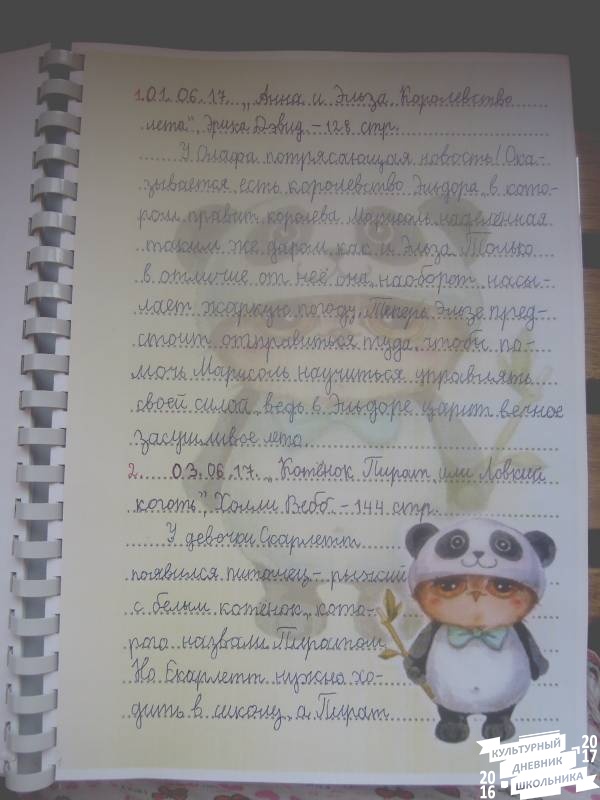 1.01.06.17. „Анна и Эльза. Королевство
лета", Эрика Дэвид. – 128 стр.
У Олафа потрясающая новость! Ока-
зывается есть королевство Эльдора, в кото-
ром правит королева Марисоль наделённая
таким же даром как и Эльза. Только
в отличие от неё она, наоборот, насы-
лает жаркую погоду. Теперь Эльзе пред-
стоит отправиться туда, чтобы по-
мочь Марисоль научиться управлять
своей силой, ведь в Эльдоре царит вечное
засушливое лето.
2. 03.06.17. „Котёнок Пират или Ловкий
коготь", Холли Вебб. – 144 стр.
У девочки Скарлетт
появился питомец – рыжий
с белым котёнок, кото-
рого назвали Пиратом.
Но Скарлетт нужно хо-
дить в школу, а Пират
КУЛЬТУРНЫЙ
ДНЕВНИК
ШКОЛЬНИКА
2016
2017